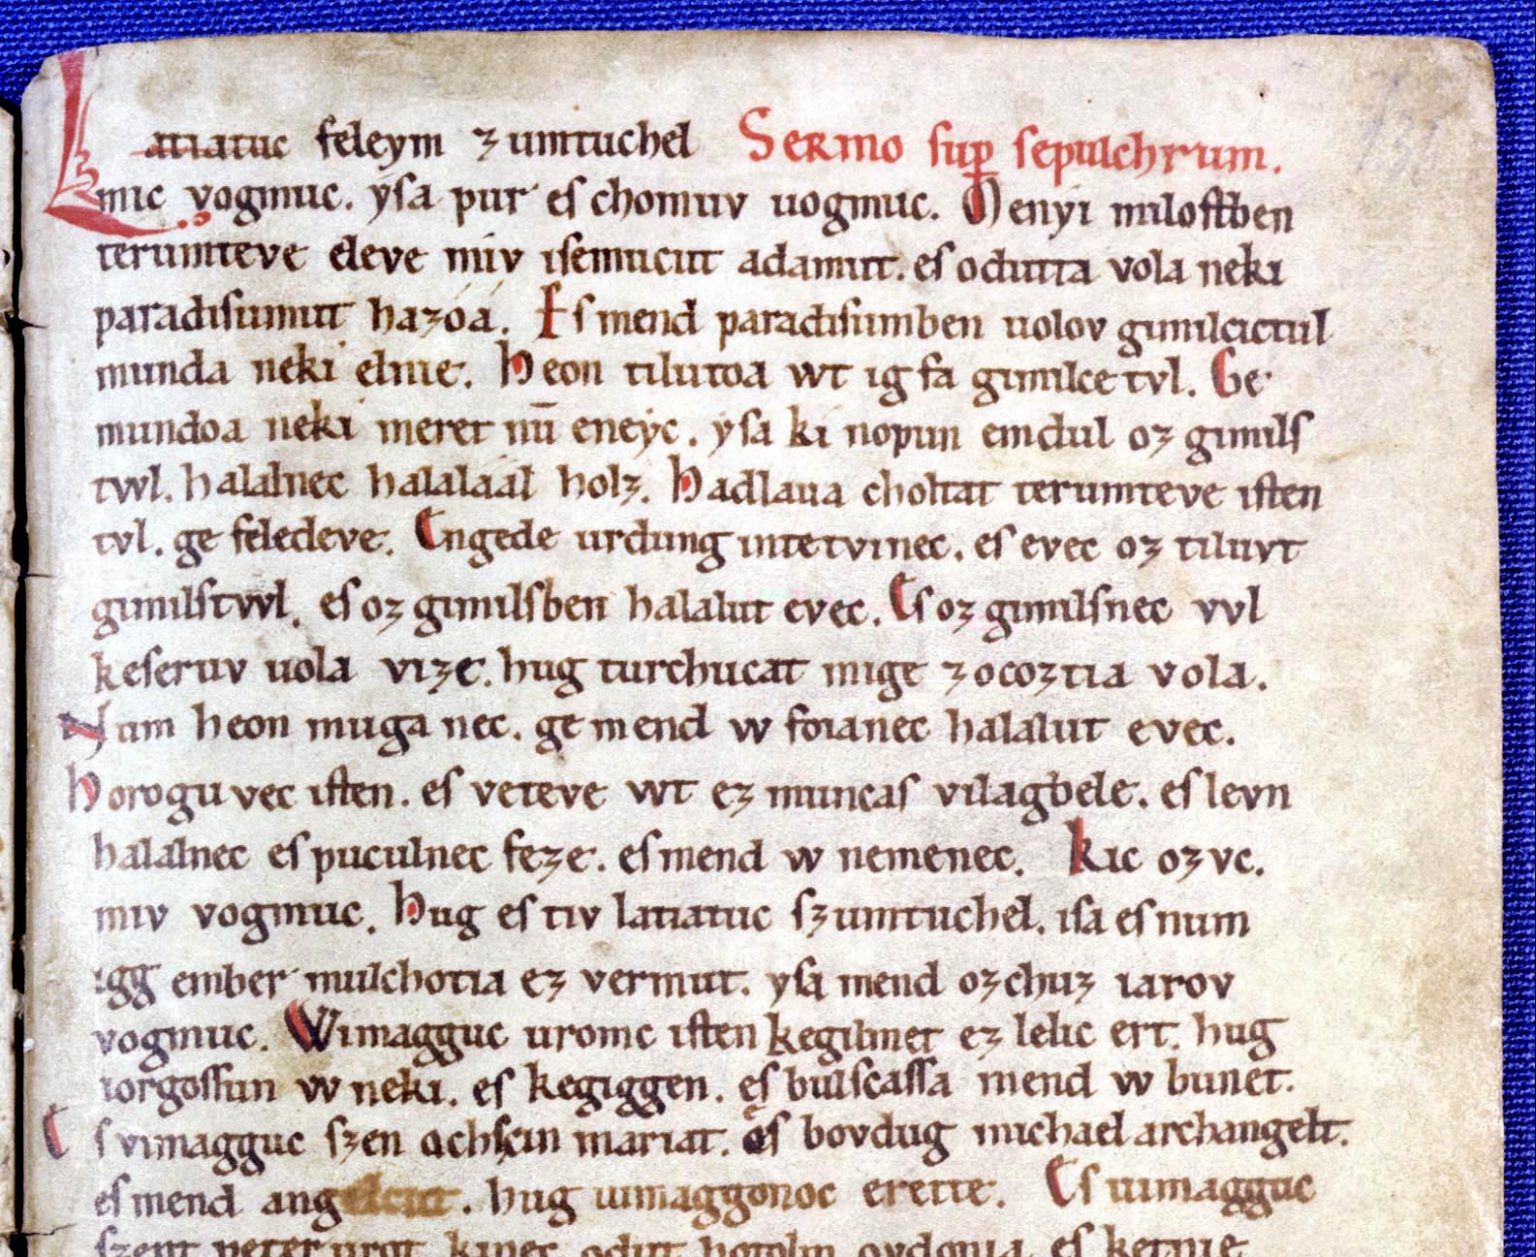 Latiatuc feleym zumtuchel Sermo sup sepulchrum.
mic vogmuc. ysa pur es chomuv uogmuc. Menyi milostben
terumteve eleve miv isemucut adamut. es odutta vola neki
paradisumut hazóá. Es mend paradisumben uolov gimilcictul
munda neki elnie. Heon tilutoa wt ig fa gimilce tvl. Ge
mundoa neki meret nū eneyc. ysa ki nopun emdul oz gimils
twl. halalnec halalaal holz. Hadlaua choltat terumteve isten
tvl. ge feledeve. Engede urdung intetvinec. es evec oz tiluvt
gimilstwl. es oz gimilsben halalut evec. Es oz gimilsnec vvl
keseruv uola vize. hug turchucat mige zocoztia vola.
Num heon muga nec. ge mend w foianec halalut evec.
Horogu vec isten. es veteve wt ez muncas vilagbele. es levn
halalnec es puculnec feze. es mend w nemenec. Kic ozvc.
miv vogmuc. Hug es tiv latiatuc szumtuchel. isa es num
igg ember mulchotia ez vermut. ysa mend ozchuz iarov
vogmuc. Wimagguc uromc isten kegilmet ez lelic ert. hug
iorgossun w neki. es kegiggen. es bulscassa mend w bunet.
Es vimagguc szen achscin mariat. es bovdug michael archangelt.
es mend angelcut. hug uimaggonoc erette. Es uimagguc
szent peter urot. kinec odut hotolm ovdonia. es ketnie